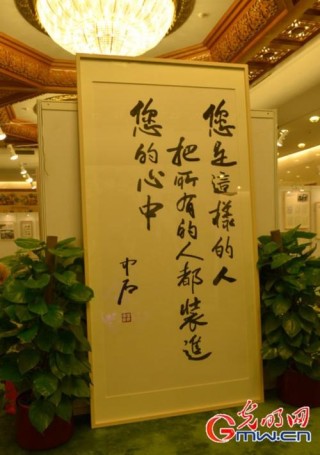 您是這樣的人
把所有的人都裝進
您的心中
中石
光明网
GMW.cn